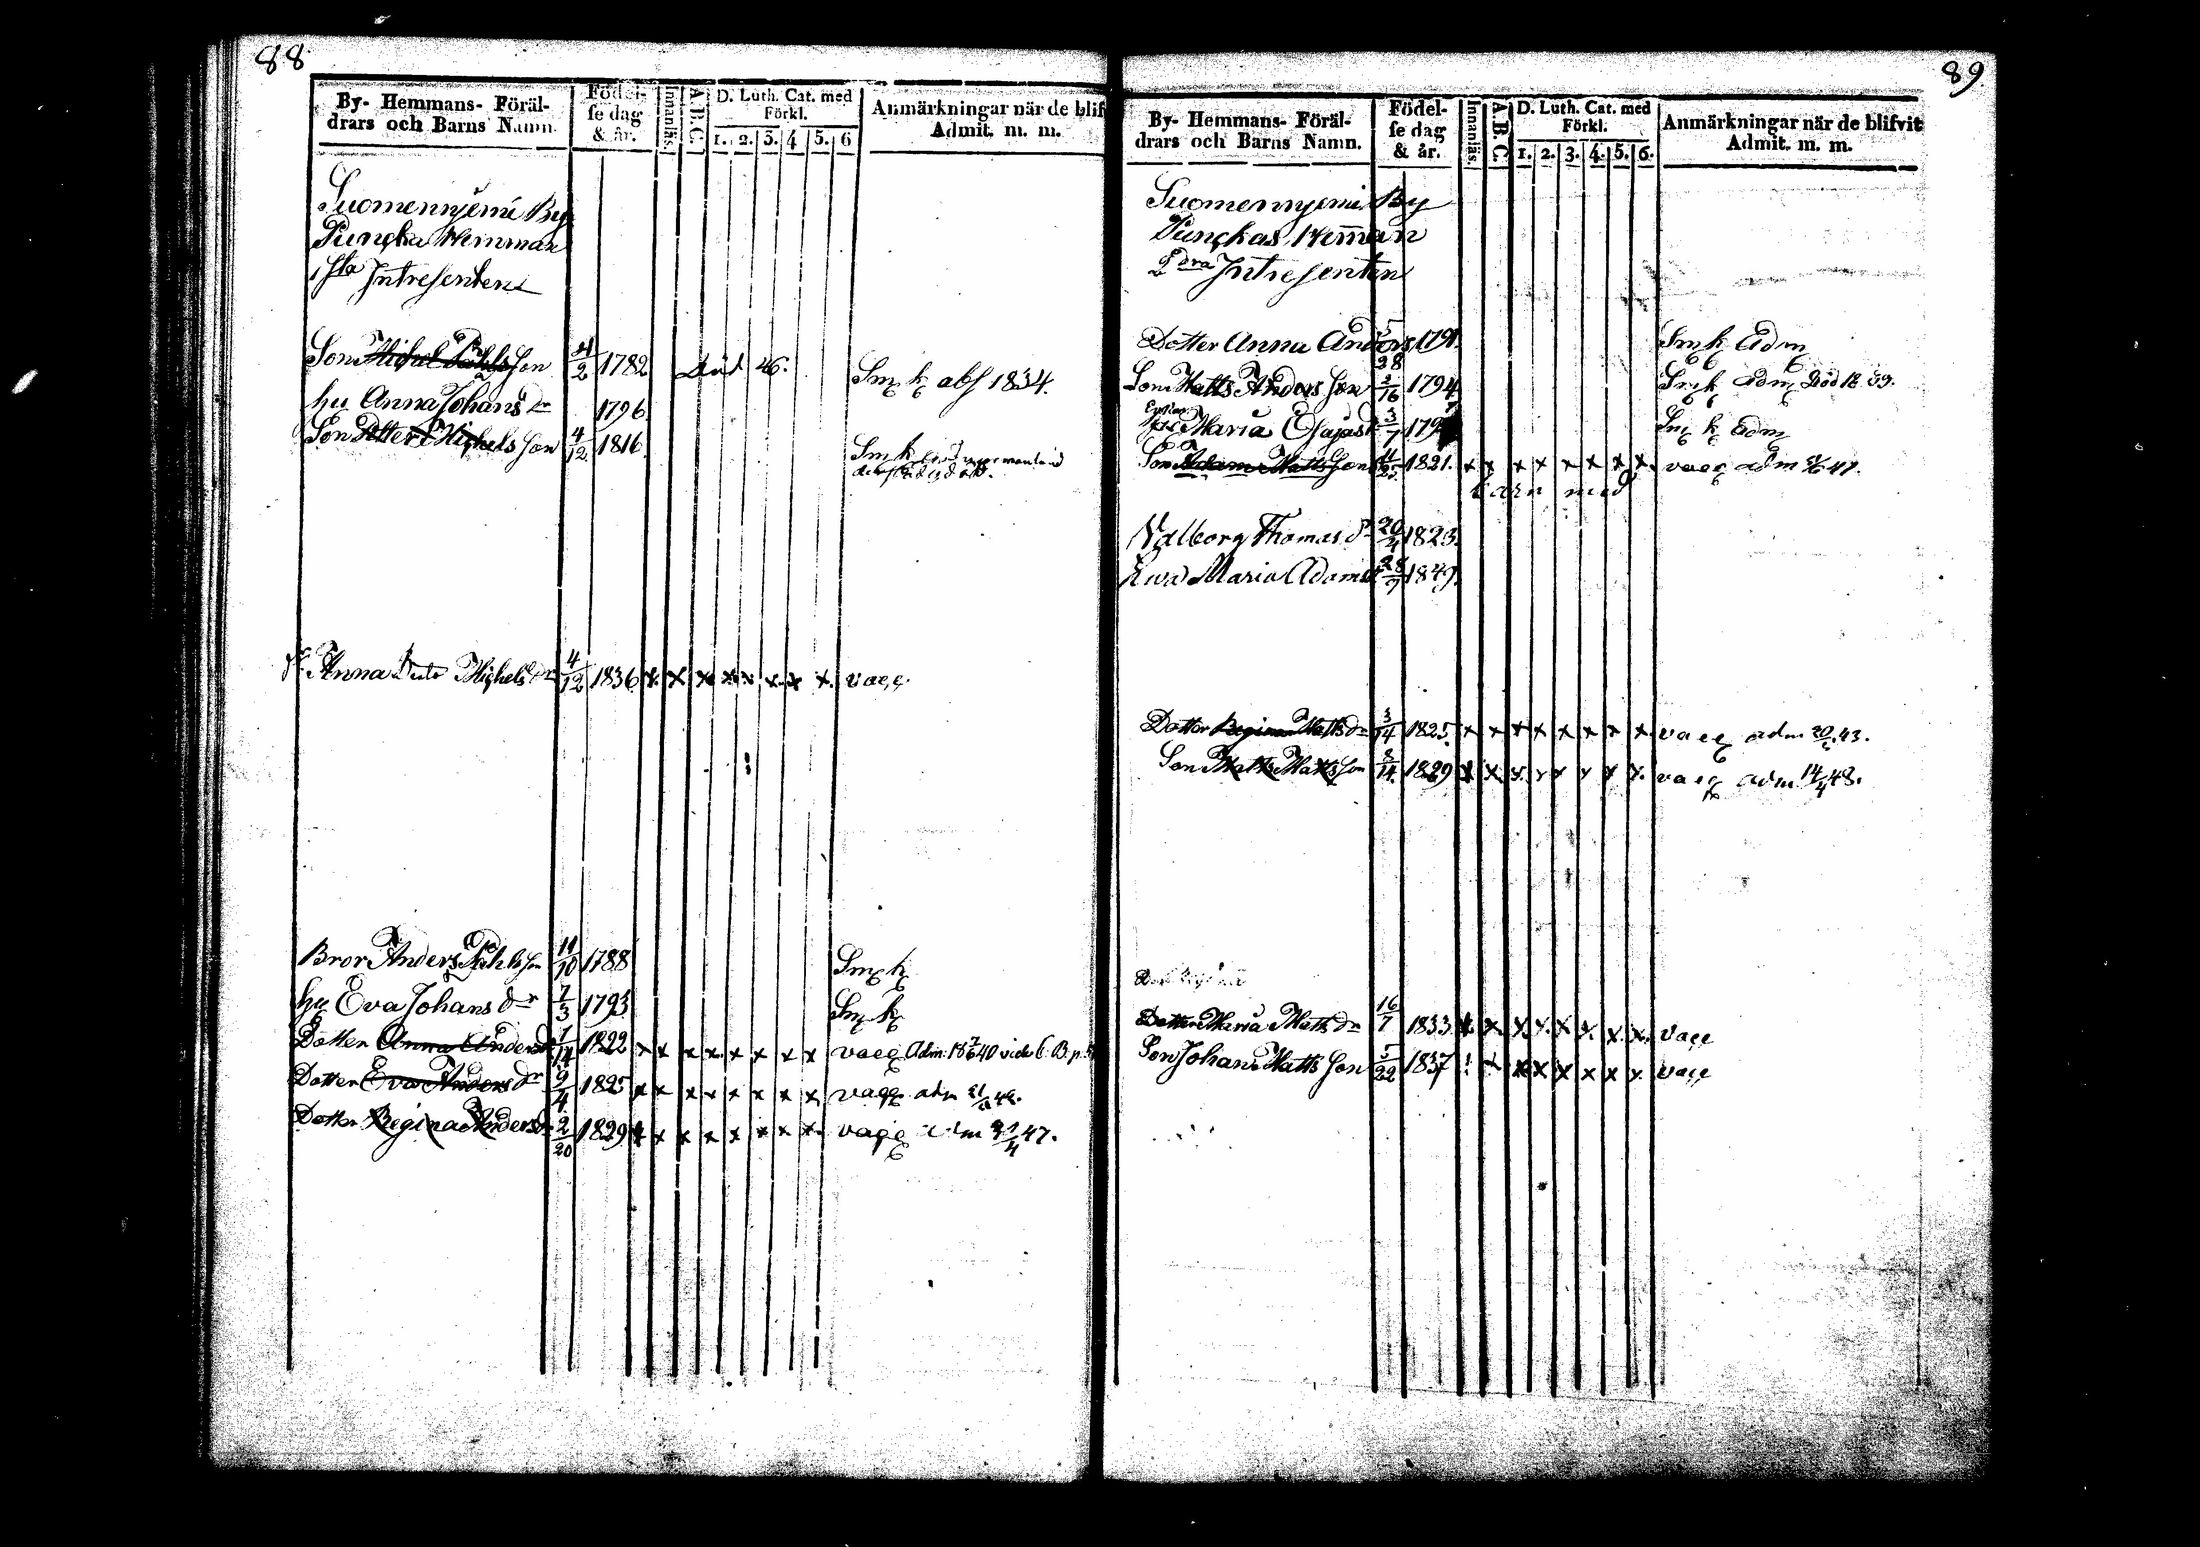 88
By- Hemmans- Föräl-
drars och Barns Namn.
Födel-
se dag
& år.
Innanläs.
A.B.C.
D. Luth. Cat. med
Förkl.
1. 2. 3. 4 5. 6
Anmärkningar när de blif
Admit. m. m.
Suomennjemi By
Puncka Hemman
1sta Intresenten
Son Michel Påhlsson 4/2 1782 Död 46. Smk abs 1834.
hu Anna Johans dr 1796
Son Petter Michels Son 4/12 1816 Smk
Anna Michels dr 4/12 1836 x x x x x x x x vacc
Bror Anders Påhlsson 11/10 1788 Smk
hu Eva Johans dr 7/3 1793 Smk
Dotter Anna Anders 1/14 1822 x x x x x x x x vacc Adm. 18 7/6 40 vide C. B. p.
Dotter Eva Anders dr 9/4 1825 x x x x x x x x vacc adm
Dotter Regina Anders 2/20 1829 x x x x x x x x vacc adm 47.
89
By- Hemmans- Föräl-
drars och Barns Namn.
Födel-
se dag
& år.
Innanläs.
A.B.C.
D. Luth. Cat. med
Förkl.
1. 2. 3. 4. 5. 6.
Anmärkningar när de blifvit
Admit. m. m.
Suomennjemi By
Punckas Hem̄an
2dra Intresenten
Dotter Anna Anders 5/28 1791 Smk Adm
Son Matts Anders Son 2/16 1794 Smk adm Död 18 39.
Maria Esajasd 3/7 Smk Adm
Son Adam Mattsson 1821. x x x x x x x x vacc adm 47.
barn med
Valborg Thomas dr 20/4 1823.
Ewa Maria Adamsd 28/9 1849.
Dotter Regina Matts dr 3/14 1825 x x x x x x x x vacc adm 43.
Son Matts Matts son 2/14 1829 x x x x x x x x vacc adm 14/4 48.
Dotter Maria Matts dr 16/7 1833 x x x x x x x x vacc
Son Johan Matts Son 5/22 1837 x x x x x x x vacc